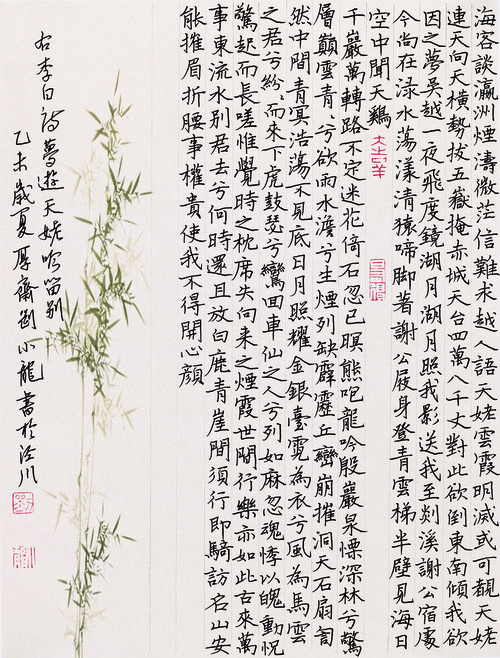 海客談瀛洲煙濤微茫信難求越人語天姥雲霞明滅或可覩天姥
連天向天橫勢拔五嶽掩赤城天台四萬八千丈對此欲倒東南傾我欲
因之夢吳越一夜飛度鏡湖月湖月照我影送我至剡溪謝公宿處
今尚在淥水蕩漾清猿啼脚著謝公屐身登青雲梯半壁見海日
空中聞天鷄
大吉羊
千巖萬轉路不定迷花倚石忽已暝熊咆龍吟殷巖泉慄深林兮驚
層巔雲青、兮欲雨水澹、兮生煙列缺霹靂丘巒崩摧洞天石扇訇
然中開青冥浩蕩不見底日月照耀金銀臺霓為衣兮風為馬雲
之君兮紛、而來下虎鼓瑟兮鸞回車仙之人兮列如麻忽魂悸以魄動怳
驚起而長嗟惟覺時之枕席失向來之煙霞世間行樂亦如此古來萬
事東流水別君去兮何時還且放白鹿青崖間須行即騎訪名山安
能摧眉折腰事權貴使我不得開心顏
右李白詩夢遊天姥吟留別
乙未歲夏厚齋劉小龍書於涇川